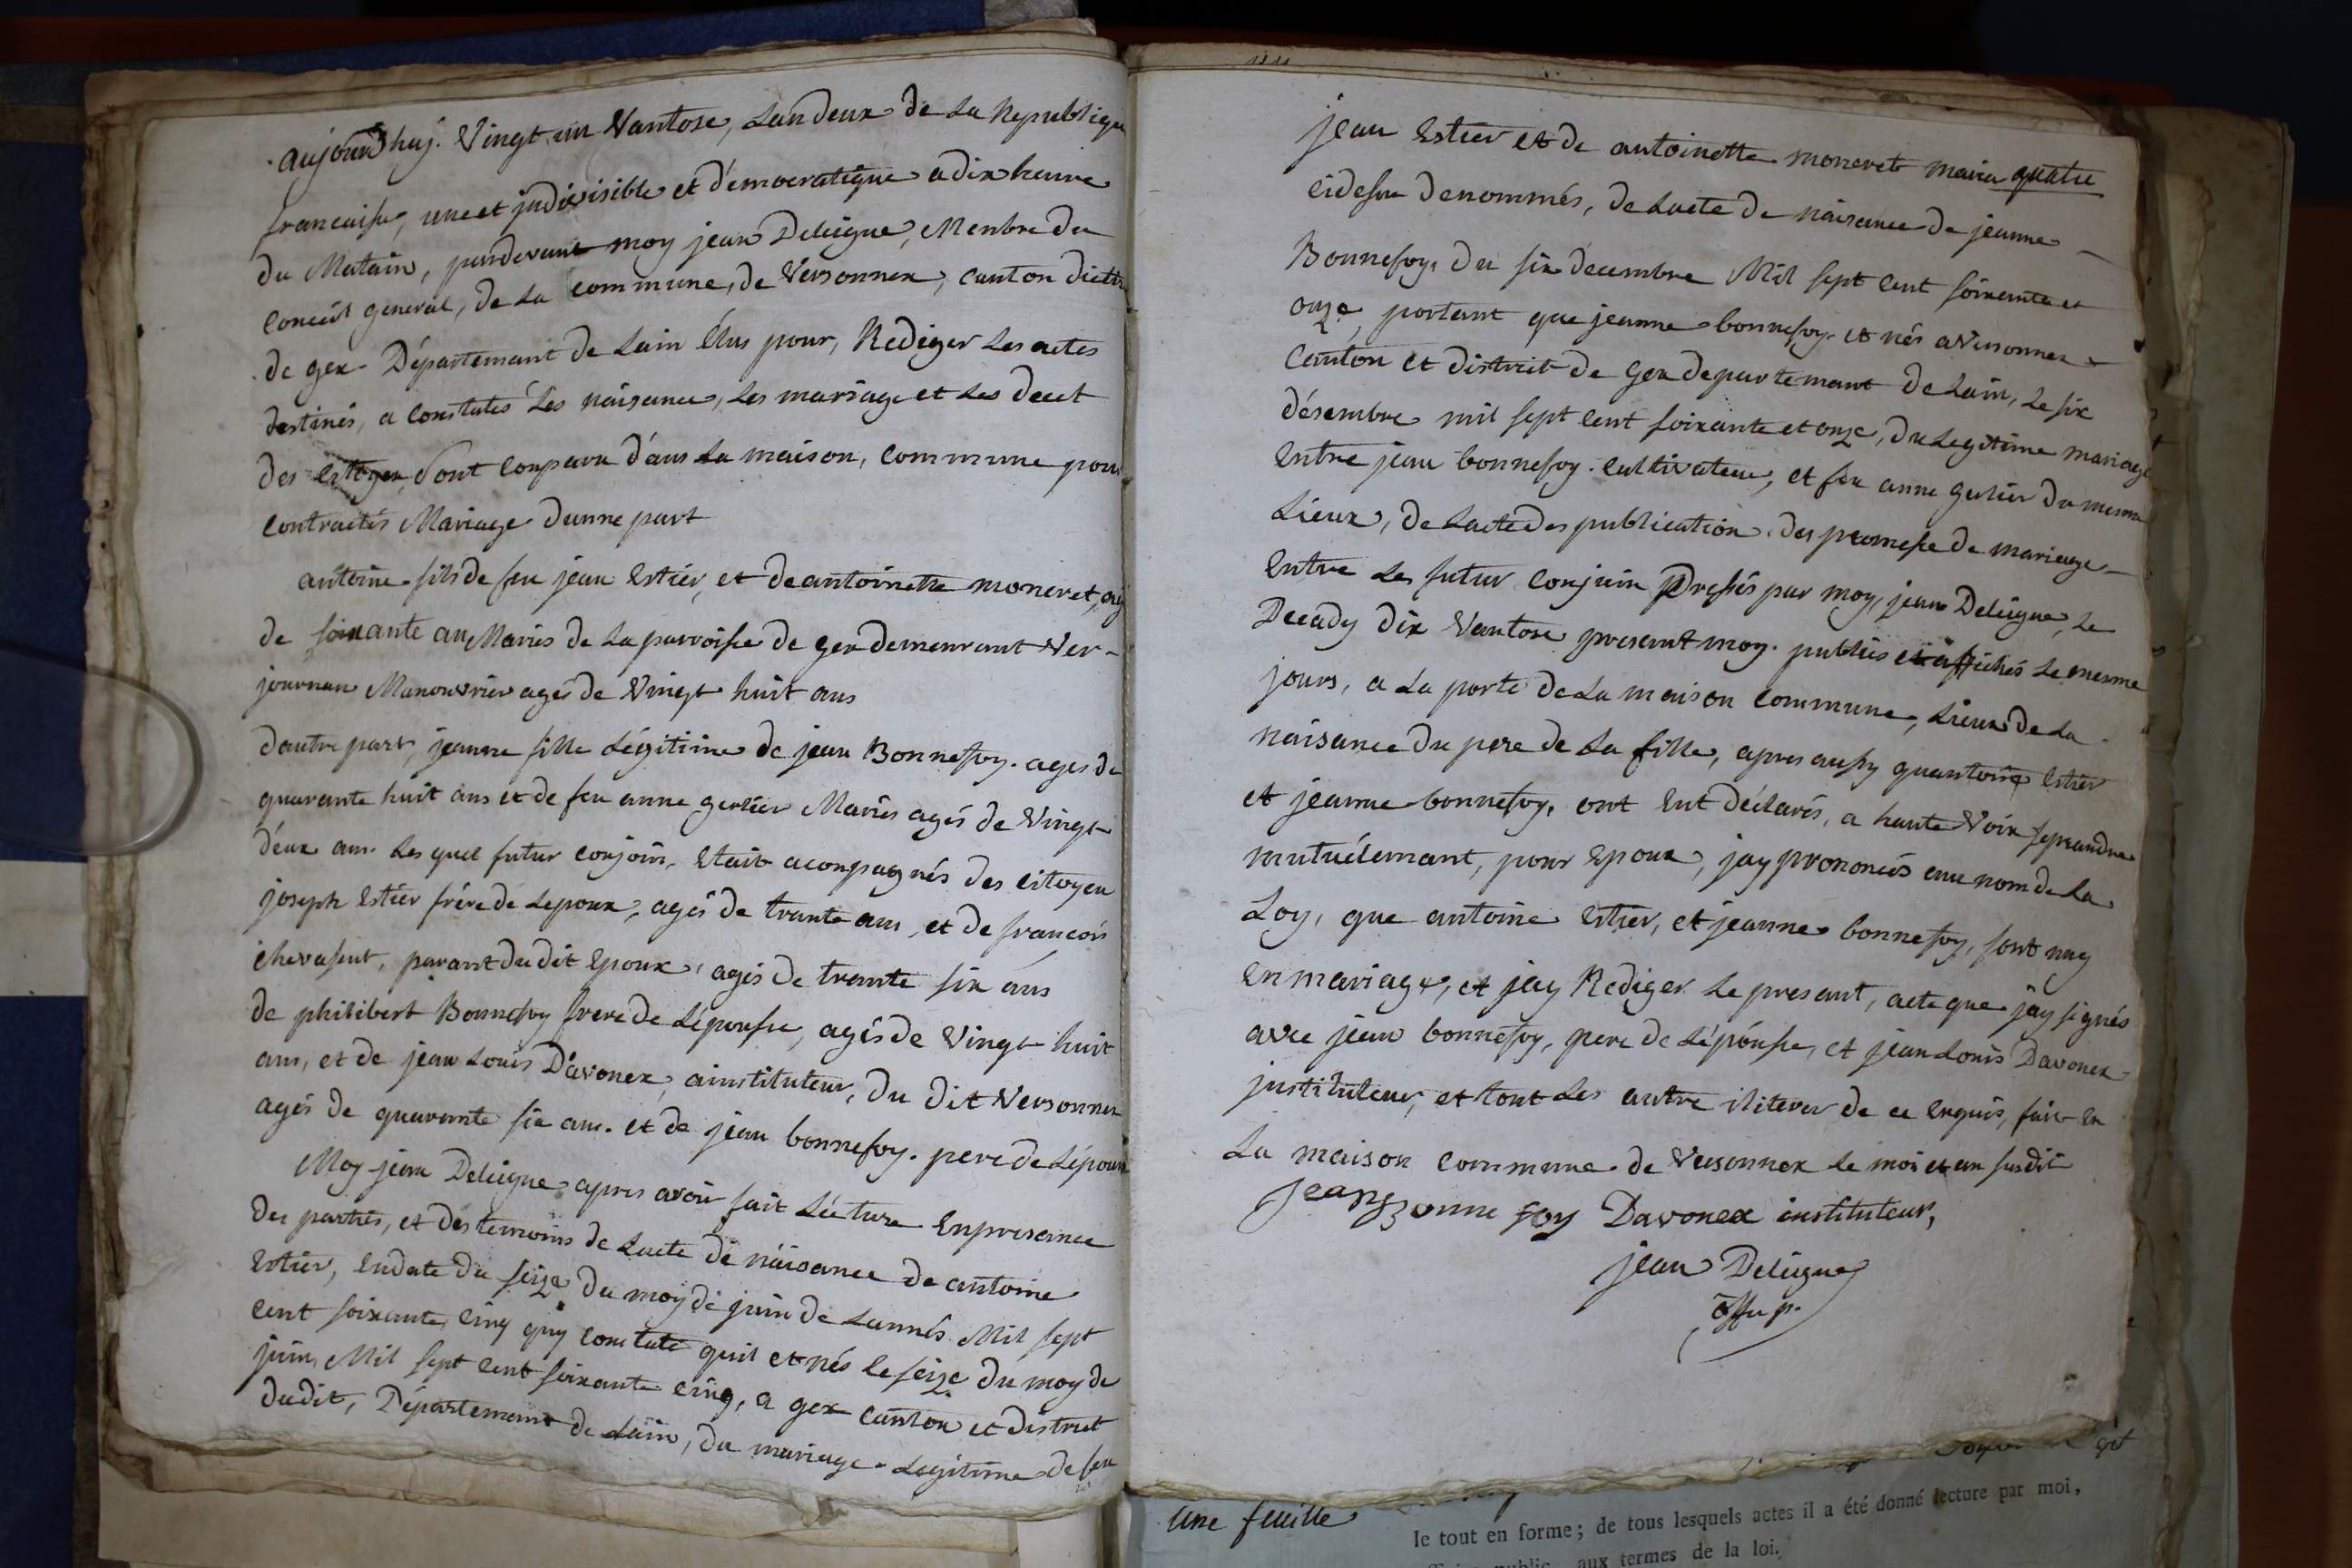 aujourdhuj. Vingt un Vantose, Lan deux de La Republique
francaise, une et jndivisible et démocratique a dix heure
du Matain, pardevant moy jean Deleigne, Menbre du
conceil general, de La commune, de Versonnex, canton dictri
de gex Département de Lain Élus pour, Rediger Les actes
destinés, a constatés Les naisance, Les mariage et Les decet
des citoyen Sont conparu dans La maison, commune pour
contractés Mariage dunne part
antoine fils de feu jean Estier, et de antoinette moneret, agé
de soixante an Mariés de La parroisse de gex demeurant Ver-
journan Manouvrier agés de Vingt huit ans
dautre part, jeanne fille Légitime de jean Bonnefoy. ages de
quarante huit ans et de feu anne gerlier Mariés agés de Vingt
deux ans. Les quel futur conjoin, Etait aconpagnés des citoyen
joseph Estier frére de Lepoux, agés de trante ans, et de francois
chevasut, parant du dit Epoux, agés de trante six ans
de philibert Bonnefoy frere de Lépousse, agés de Vingt huit
ans, et de jean Louis Davonex, ainstituteur, du dit Versonnex
agés de quarante six ans. et de jean bonnefoy. pere de Lépouse
Moy jean Deleigne apres avoir fait Lécture Enpresence
des partiés, et des temoins de Lacte de náisance de antoine
Estier, Endate du seize du moy de juin de Lannés Mil sept
cent soixante cinq quy constate quil et nés le seize du moy de
juin, Mil sept cent soixante cinq, a gex canton et district
dudit, Département de Lain, du mariage Legitime de feu
jean Estier et de antoinette moneret maria quatre
cidessu denommés, de Lacte de naisance de jeanne
Bonnefoy, du six décembre Mil sept cent soixante et
onze, portant que jeanne bonnefoy et nés a Versonnex
canton et district de gex departemant de Lain, Le six
désembre mil sept cent soixante et onze, du Legitime mariage
Entre jean bonnefoy. cultivateur, et feu anne gerlier du mesme
Lieux, de Lacte des publication. des promesse de mariage
Entre Les futur conjuin Dressés par moy, jean Deleigne, Le
Decady dix Vantose presant moy. publiés et affichés Le mesme
jours, a La porte de La maison commune, Lieux de La
naisance du pere de La fille, apres aussy quantoine Estier
et jeanne bonnefoy, ont Eut déclarés, a haute Voix se prandre
mutuélemant, pour Epoux, jay prononcés enu nom de La
Loy, que antoine Estier, et jeanne bonnefoy, sont nuy
en mariage, et jay Rediger Le presant, acte que jay signés
avec jean bonnefoy, pere de Lépóusse, et jean Louis Davonex
justituteur, et tout Les autre iliterer de ce Enquis, fait En
La maison commune de Versonnex Le moi et an susdit
jean Bonne foy Davonex instituteur,
jean Deleigne
offu p.
Une feuille
le tout en forme; de tous lesquels actes il a été donné lecture par moi,
public aux termes de la loi.